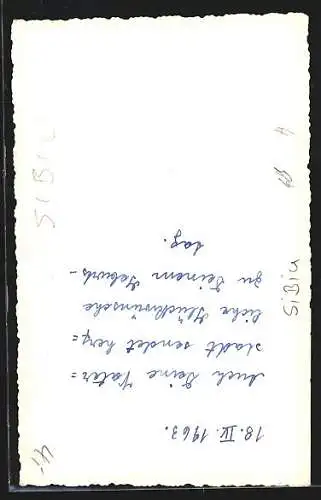 18. IV. 1963.
Auch Deine Vater=
stadt sendet herz=
liche Glückwünsche
zu Deinem Geburts-
tag.
SiBiU
SiBiU